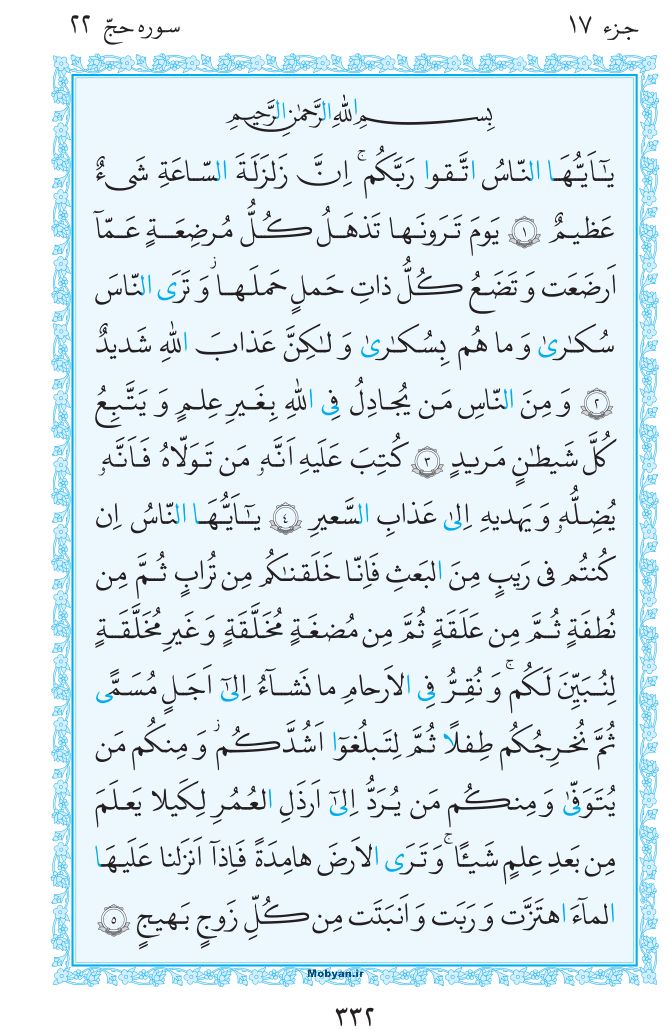 جزء ١٧
سوره حجّ ٢٢
بِسمِ اللهِ الرَّحمٰنِ الرَّحيمِ
يـٰٓاَيُّهَا النّاسُ اتَّقوا رَبَّكُم ۚ اِنَّ زَلزَلَةَ السّاعَةِ شَىءٌ
عَظيمٌ ١ يَومَ تَرَونَها تَذهَلُ كُلُّ مُرضِعَةٍ عَمّآ
اَرضَعَت وَ تَضَعُ كُلُّ ذاتِ حَملٍ حَملَها وَ تَرَى النّاسَ
سُكـٰرىٰ وَ ما هُم بِسُكـٰرىٰ وَ لـٰكِنَّ عَذابَ اللهِ شَديدٌ
٢ وَ مِنَ النّاسِ مَن يُجادِلُ فِى اللهِ بِغَيرِ عِلمٍ وَ يَتَّبِعُ
كُلَّ شَيطـٰنٍ مَريدٍ ٣ كُتِبَ عَلَيهِ اَنَّهٗ مَن تَوَلّاهُ فَاَنَّهٗ
يُضِلُّهٗ وَ يَهديهِ اِلىٰ عَذابِ السَّعيرِ ٤ يـٰٓاَيُّهَا النّاسُ اِن
كُنتُم فى رَيبٍ مِنَ البَعثِ فَاِنّا خَلَقنـٰكُم مِن تُرابٍ ثُمَّ مِن
نُطفَةٍ ثُمَّ مِن عَلَقَةٍ ثُمَّ مِن مُضغَةٍ مُخَلَّقَةٍ وَ غَيرِ مُخَلَّقَةٍ
لِنُبَيِّنَ لَكُم ۚ وَ نُقِرُّ فِى الاَرحامِ ما نَشآءُ اِلىٰٓ اَجَلٍ مُسَمًّى
ثُمَّ نُخرِجُكُم طِفلًا ثُمَّ لِتَبلُغوٓا اَشُدَّكُم وَ مِنكُم مَن
يُتَوَفّىٰ وَ مِنكُم مَن يُرَدُّ اِلىٰٓ اَرذَلِ العُمُرِ لِكَيلا يَعلَمَ
مِن بَعدِ عِلمٍ شَيئًا ۚ وَ تَرَى الاَرضَ هامِدَةً فَاِذآ اَنزَلنا عَلَيهَا
المآءَ اهتَزَّت وَ رَبَت وَ اَنبَتَت مِن كُلِّ زَوجٍ بَهيجٍ ٥
Mobyan.ir
٣٣٢